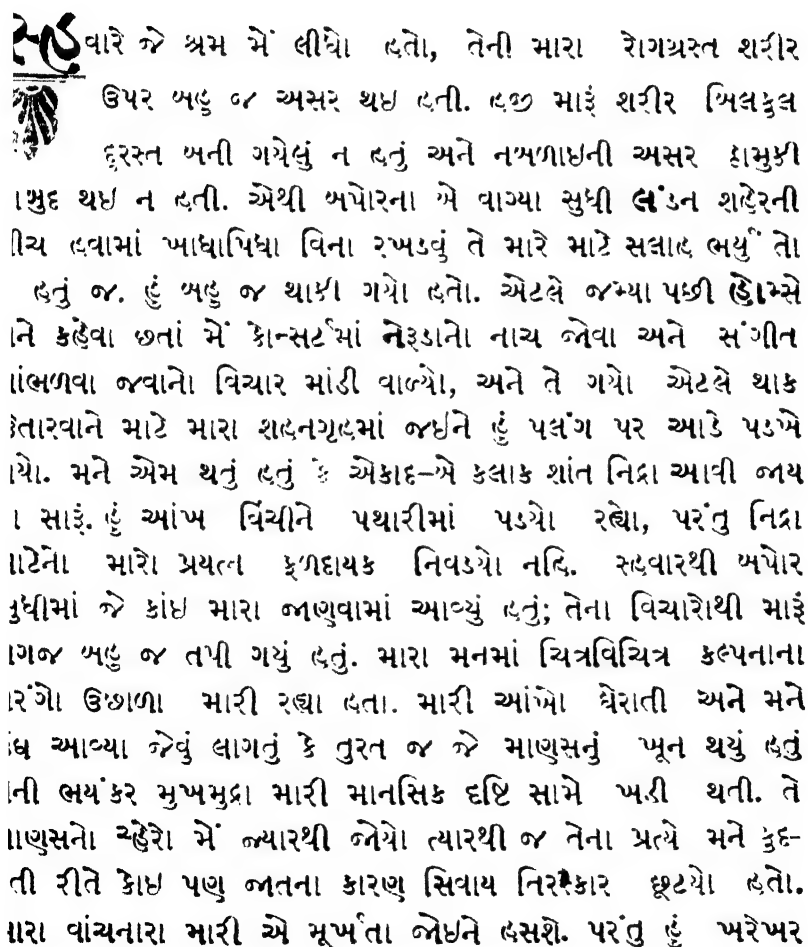 સ્હવારે જે શ્રમ મેં લીધો હતો, તેની મારા રોગગ્રસ્ત શરીર
ઉપર બહુ જ અસર થઇ હતી. હજી મારૂં શરીર બિલકુલ
દુરસ્ત બની ગયેલું ન હતું અને નબળાઇની અસર હામુકી
થઇ ન હતી. એથી બપોરના બે વાગ્યા સુધી લંડન શહેરની
હવામાં ખાધાપિધા વિના રખડવું તે મારે માટે સલાહ ભર્યું તો
હતું જ. હું બહુ જ થાકી ગયો હતો. એટલે જમ્યા પછી હોમ્સે
કહેવા છતાં મેં કોન્સર્ટમાં નેરૂડાનો નાચ જોવા અને સંગીત
જવાનો વિચાર માંડી વાળ્યો, અને તે ગયો એટલે થાક
ઉતારવાને માટે મારા શહનગૃહમાં જઇને હું પલંગ પર આડે પડખે
મને એમ થતું હતું કે એકાદ-બે કલાક શાંત નિદ્રા આવી જાય
સારૂં. હું આંખ વિંચીને પથારીમાં પડયો રહ્યો, પરંતુ નિદ્રા
માટેનો મારો પ્રયત્ન ફળદાયક નિવડયો નહિ. સ્હવારથી બપોર
સુધીમાં જે કાંઇ મારા જાણવામાં આવ્યું હતું; તેના વિચારોથી મારૂં
મગજ બહુ જ તપી ગયું હતું. મારા મનમાં ચિત્રવિચિત્ર કલ્પનાના
તરંગો ઉછાળા મારી રહ્યા હતા. મારી આંખો ઘેરાતી અને મને
ઉંઘ આવ્યા જેવું લાગતું કે તુરત જ જે માણસનું ખૂન થયું હતું
તેની ભયંકર મુખમુદ્રા મારી માનસિક દષ્ટિ સામે ખડી થતી. તે
માણસનો ચ્હેરો મેં જ્યારથી જોયો ત્યારથી જ તેના પ્રત્યે મને કુદ-
રતી રીતે કોઇ પણ જાતના કારણ સિવાય તિરસ્કાર છૂટયો હતો.
મારા વાંચનારા મારી એ મૂર્ખતા જોઇને હસશે. પરંતુ હું ખરેખર